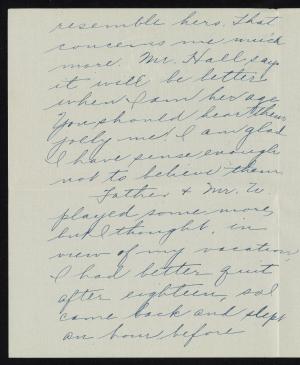 resemble hers. That
concerns me much
more. Mr. Hall says
it will be better
when I am her age
You should hear them
jolly me! I am glad
I have sense enough
not to believe them
Father & Mr. W
played some more,
but I thought, in
view of my vacation,
I had better quit
after eighteen, so I
came back and slept
an hour before